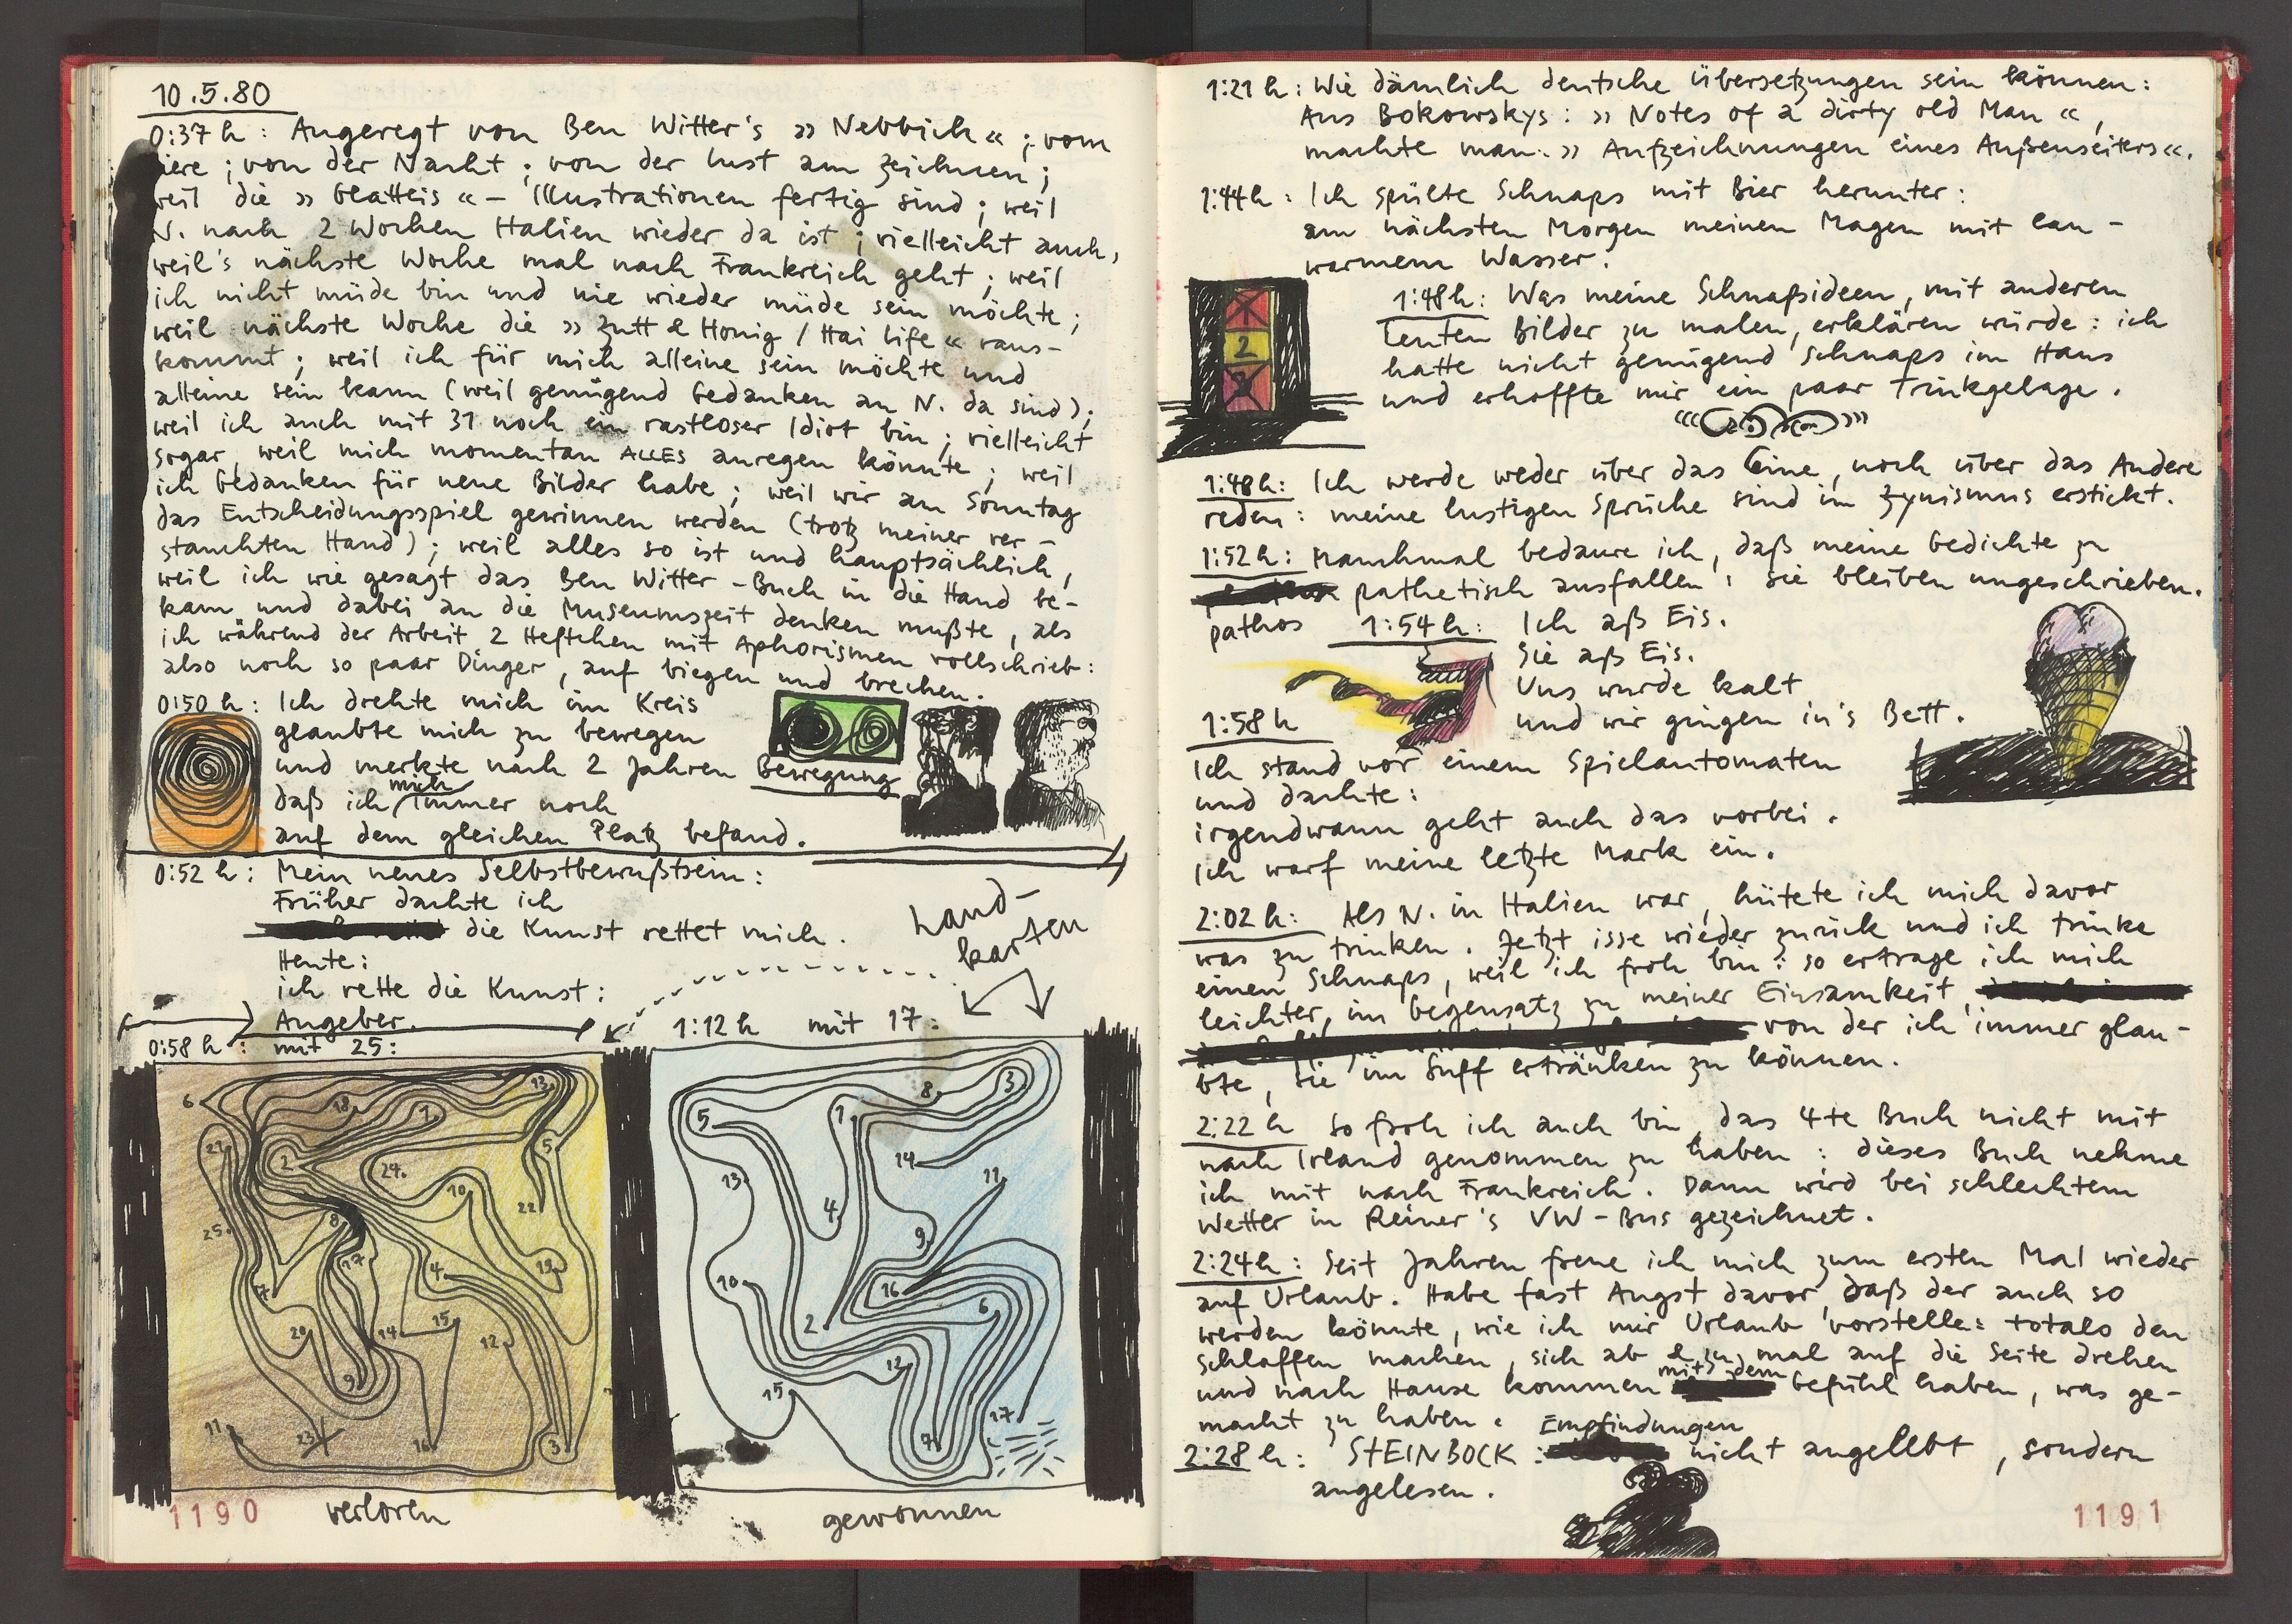 10.5.80
0:37 h: Angeregt von Ben Witter's » Nebbich «; vom
iere; von der Nacht; von der Lust am zeichnen;
weil die » Glatteis « – Illustrationen fertig sind; weil
N. nach 2 Wochen Italien wieder da ist; vielleicht auch,
weil's nächste Woche mal nach Frankreich geht; weil
ich nicht müde bin und nie wieder müde sein möchte;
weil nächste Woche die » Zutt & Honig / Hai life « raus-
kommt; weil ich für mich alleine sein möchte und
alleine sein kann (weil genügend Gedanken an N. da sind);
weil ich auch mit 31 noch ein rastloser Idiot bin; vielleicht
sogar, weil mich momentan ALLES anregen könnte; weil
ich Gedanken für neue Bilder habe; weil wir am Sonntag
das Entscheidungsspiel gewinnen werden (trotz meiner ver-
stauchten Hand); weil alles so ist und hauptsächlich,
weil ich wie gesagt das Ben Witter-Buch in die Hand be-
kam und dabei an die Museumszeit denken mußte, als
ich während der Arbeit 2 Heftchen mit Aphorismen vollschrieb:
also noch so paar Dinger, auf biegen und brechen.
0:50 h: Ich drehte mich im Kreis
glaubte mich zu bewegen
und merkte nach 2 Jahren Bewegung
daß ich mich immer noch
auf dem gleichen Platz befand.
0:52 h: Mein neues Selbstbewußtsein:
Früher dachte ich
die Kunst rettet mich.
Heute:
ich rette die Kunst:
Angeber.
Land-
karten
0:58 h: mit 25:
6 18 1 13 21 2 24. 5 10 22 25. 8 17 7 4 19 20 14 15 12 9 11 23 16 3
verloren
1:12 h mit 17:
5 1 8 3 14 11 13 4 9 10 16 2 6 12 15 7 17
gewonnen
1190
1:21 h: Wie dämlich deutsche Übersetzungen sein können:
Aus Bokowskys: » Notes of a dirty old Man «,
machte man: » Aufzeichnungen eines Außenseiters «.
1:44 h: Ich spülte Schnaps mit Bier herunter:
am nächsten Morgen meinen Magen mit lau-
warmem Wasser.
X
2
1:48 h: Was meine Schnapsideen, mit anderen
Leuten Bilder zu malen, erklären würde: ich
hatte nicht genügend Schnaps im Haus
und erhoffte mir ein paar Trinkgelage.
1:48 h: Ich werde weder über das Eine, noch über das Andere
reden: meine lustigen Sprüche sind im Zynismus erstickt.
1:52 h: Manchmal bedaure ich, daß meine Gedichte zu
pathetisch ausfallen: sie bleiben ungeschrieben.
pathos
1:54 h: Ich aß Eis.
Sie aß Eis.
Uns wurde kalt
und wir gingen in's Bett.
1:58 h
Ich stand vor einem Spielautomaten
und dachte:
irgendwann geht auch das vorbei.
Ich warf meine letzte Mark ein.
2:02 h: Als N. in Italien war, hütete ich mich davor
was zu trinken. Jetzt isse wieder zurück und ich trinke
einen Schnaps, weil ich froh bin: so ertrage ich mich
leichter, im Gegensatz zu meiner Einsamkeit,
von der ich immer glau-
bte, sie im Suff ertränken zu können.
2:22 h So froh ich auch bin, das 4te Buch nicht mit
nach Irland genommen zu haben: dieses Buch nehme
ich mit nach Frankreich. Dann wird bei schlechtem
Wetter in Reiner's VW-Bus gezeichnet.
2:24 h: Seit Jahren freue ich mich zum ersten Mal wieder
auf Urlaub. Habe fast Angst davor, daß der auch so
werden könnte, wie ich mir Urlaub vorstelle: totalo den
Schlaffen machen, sich ab & zu mal auf die Seite drehen
und nach Hause kommen mit dem Gefühl haben, was ge-
macht zu haben.
2:28 h: STEINBOCK: Empfindungen nicht angelebt, sondern
angelesen.
1191